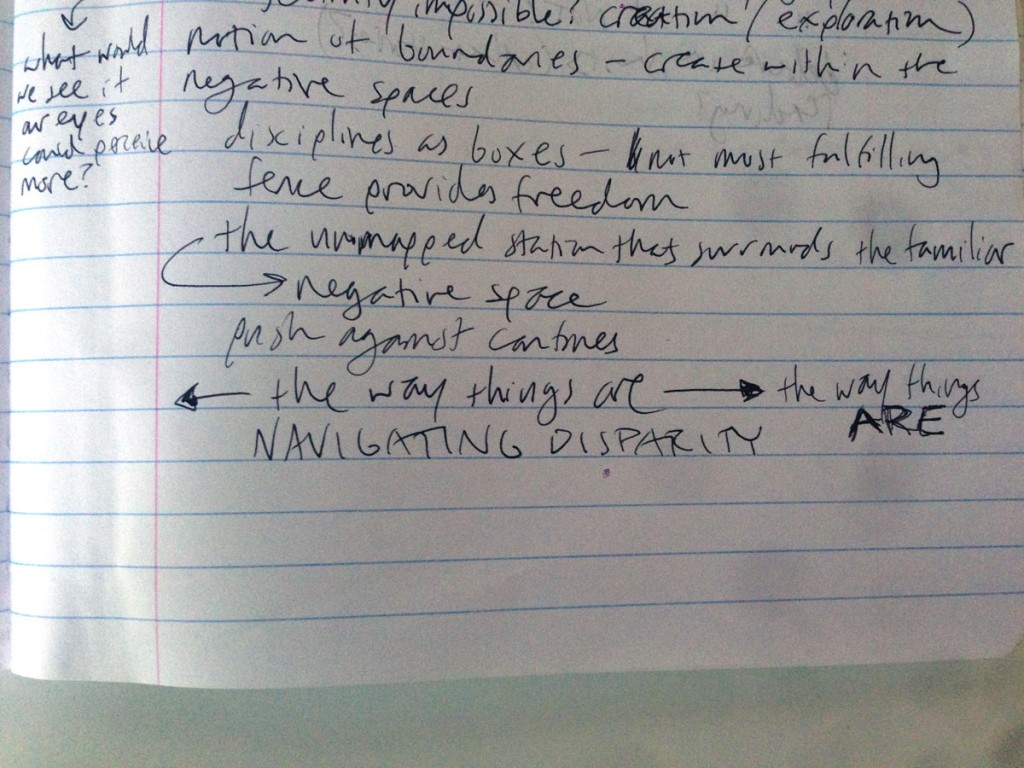 impossible? creation (exploration)
notion of boundaries – create within the
negative spaces
disciplines as boxes – not most fulfilling
fence provides freedom
the unmapped station that surrounds the familiar
negative space
push against confines
the way things are the way things
ARE
NAVIGATING DISPARITY
what would
we see if
our eyes
could perceive
more?